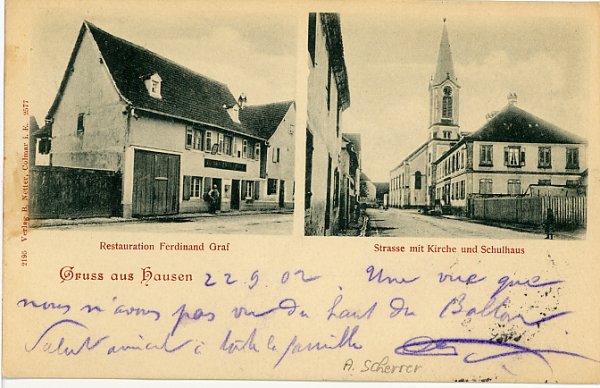 Restauration Ferdinand Graf
Strasse mit Kirche und Schulhaus
2195 Verlag B. Netter, Colmar i. E. 2577
Gruss aus Hausen 22 9 02 Une vue que
nous n'avons pas vu du haut du Ballon,
Salut amical à toute la famille
A. Scherrer